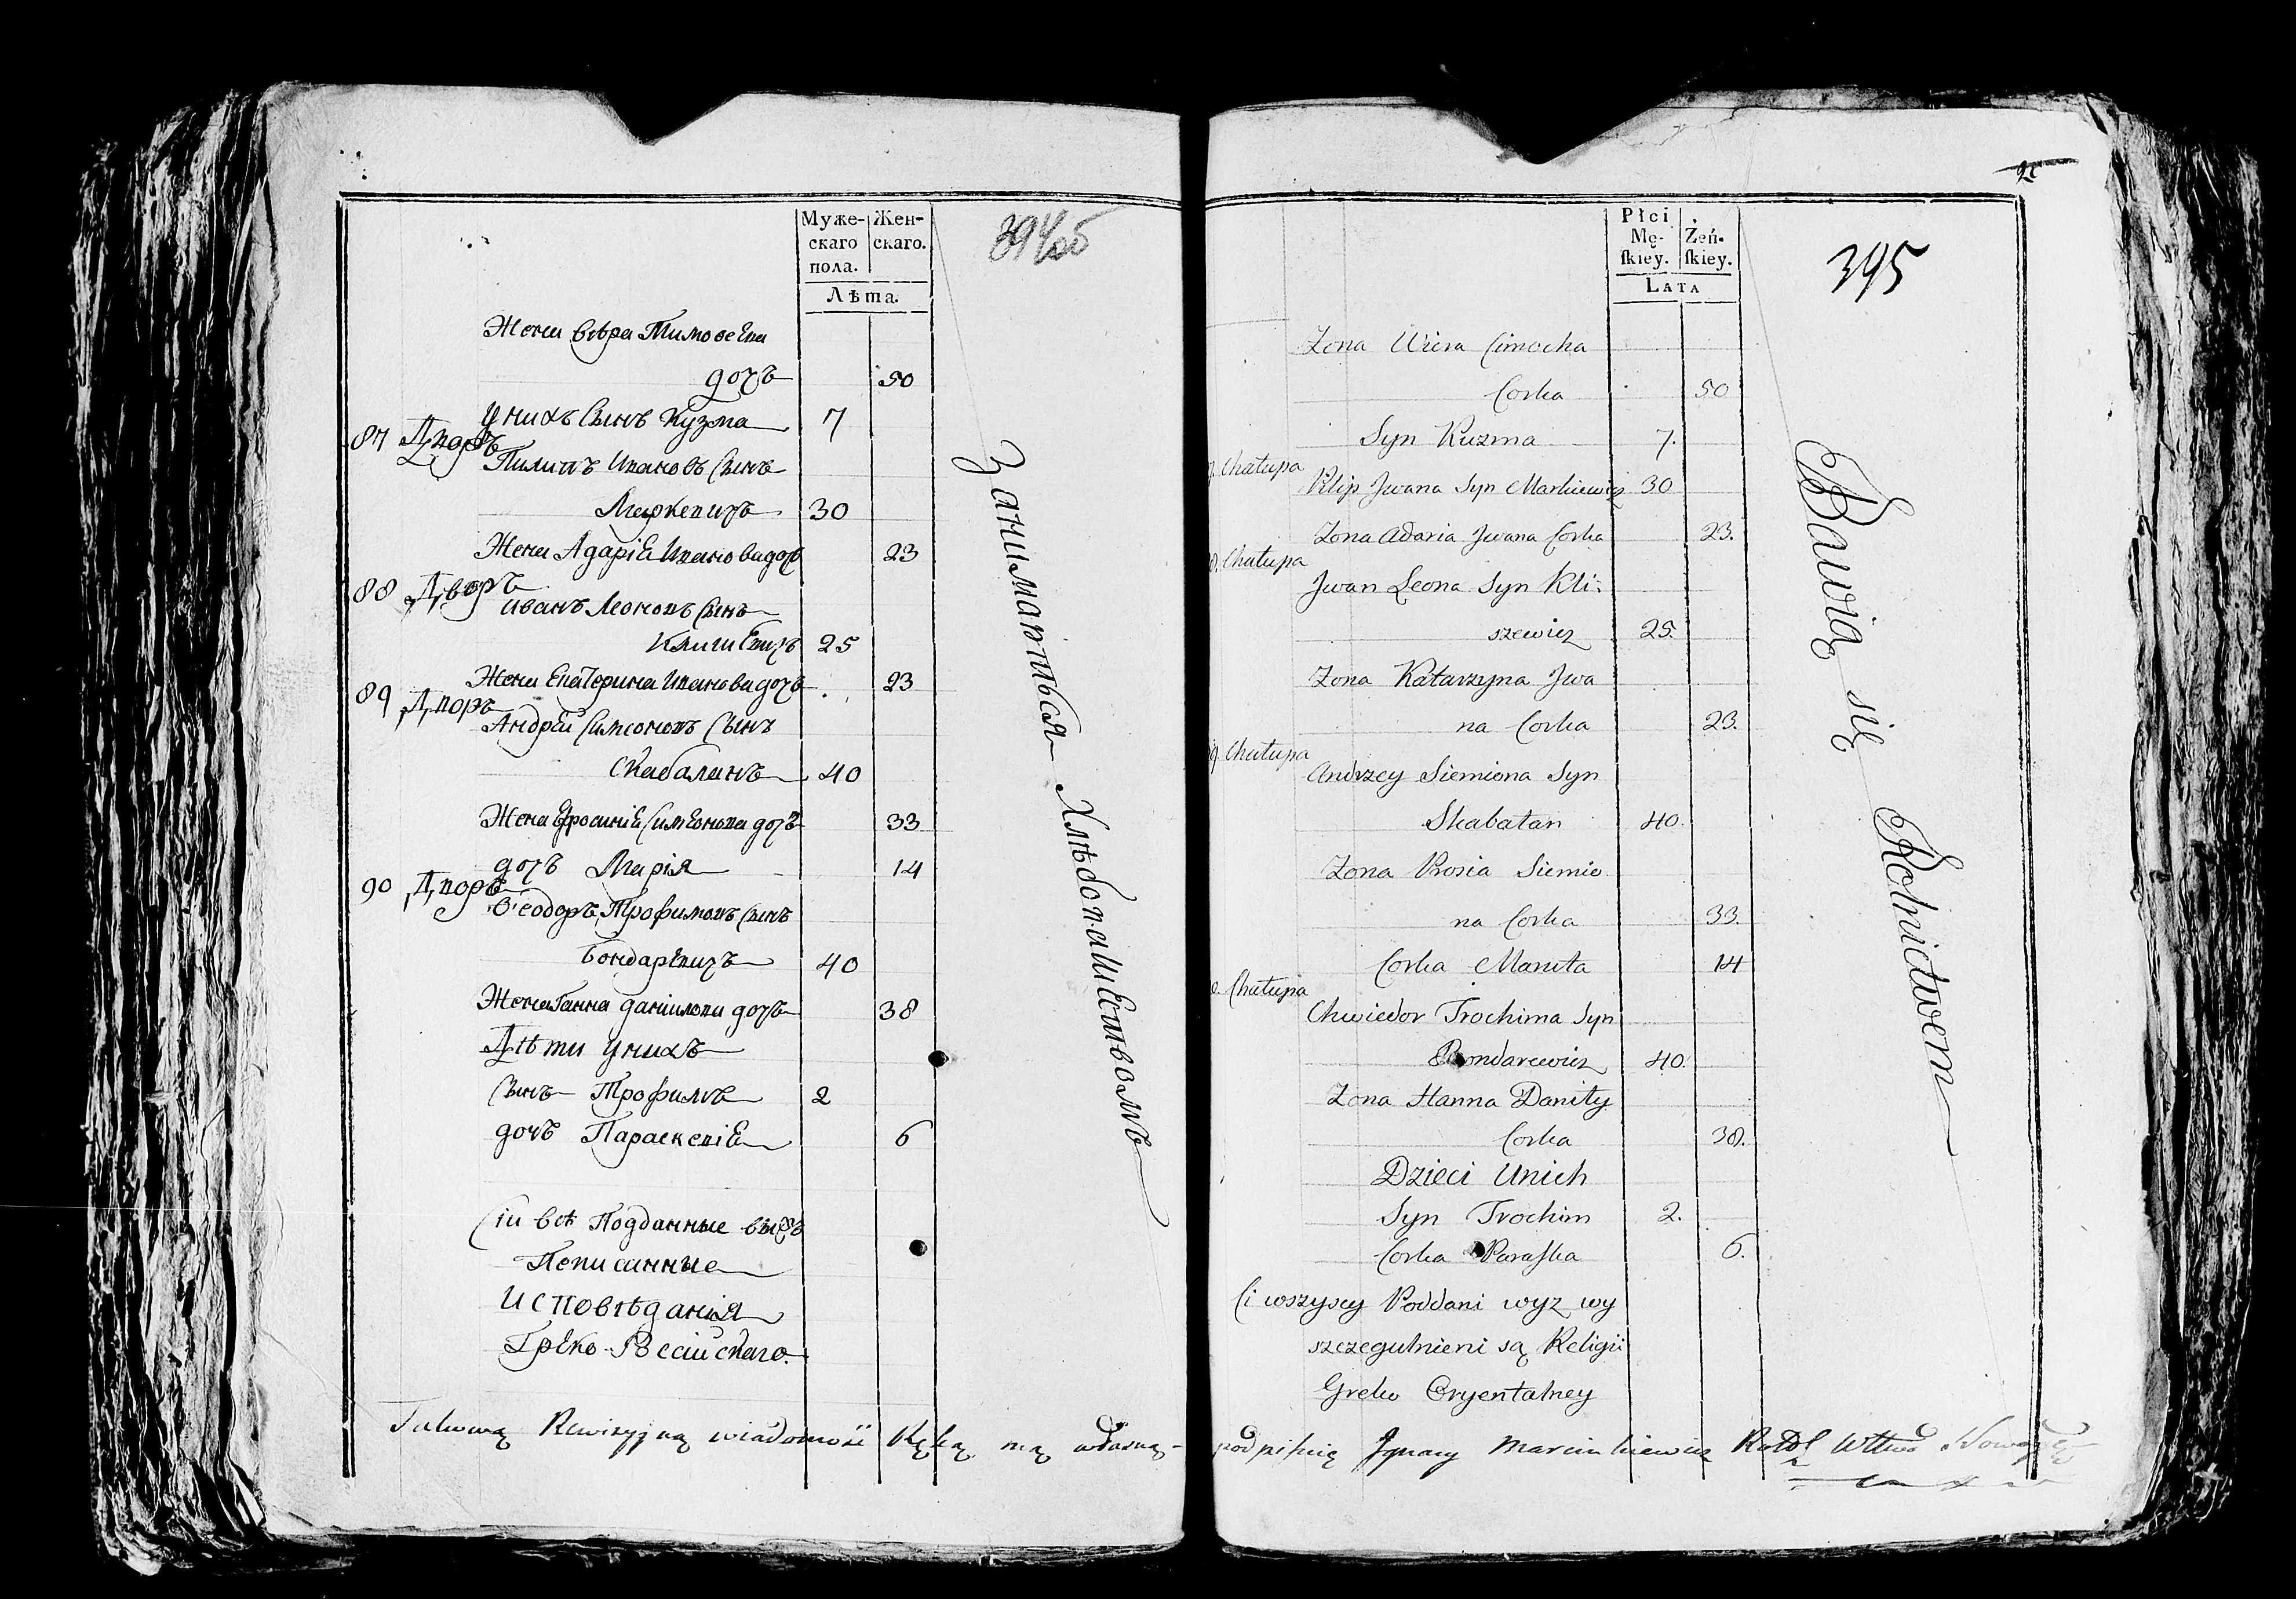 Муже-
скаго
пола.
Жен-
скаго.
Лѣта.
394об
Жена вѣра Тимофеева
дочъ 50
у нихъ Сынъ Кузма 7
87 Дворъ
Пилипъ Ивановъ Сынъ
Маркевичъ 30
Жена Адаріа Иванова дочъ 23
88 Дворъ
иванъ Леоновъ Сынъ
Клишевичъ 25
Жена Екатерина Иванова дочъ 23
89 Дворъ
Андрей Симеоновъ Сынъ
Скабаланъ 40
Жена Ефросиніа Симеонова дочъ 33
дочъ Марія 14
90 Дворъ
Ѳеодоръ Трофимовъ Сынъ
Бондаревичъ 40
Жена Ганна Даніилова дочъ 38
Дѣти у нихъ
Сынъ Трофимъ 2
дочъ Параскевіа 6
Сіи всѣ Подданные
Пописанные
Исповѣданія
Греко-Россійскаго.
Занимаются Хлѣбопашествомъ
Płci
Mę-
ſkiey.
Żeń-
ſkiey.
LATA
395
Zona Wiera Cimocha
Corka 50
Syn Kuzma 7.
Chałupa
Pilip Jwana Syn Markiewicz 30
Zona Adaria Jwana Corka 23.
Chałupa
Jwan Leona Syn Kli:
szewicz 25.
Zona Katarzyna Jwa
na Corka 23.
Chałupa
Andrzey Siemiona Syn
Skabałan 40.
Zona Prosia Siemio
na Corka 33.
Corka Maruta 14
Chałupa
Chwiedor Trochima Syn
Bondarewicz 40.
Zona Hanna Daniły
Corka 38.
Dzieci Unich
Syn Trochim 2.
Corka Paraſka 6.
Ci wszyscy Poddani wyz wy
szczegulnieni są Religii
Greko Oryentalney
Bawią się Rolnictwem
Takową Rewizyjną wiadomość Ręką mą własną podpiſuię Jgnacy Marcinkiewicz